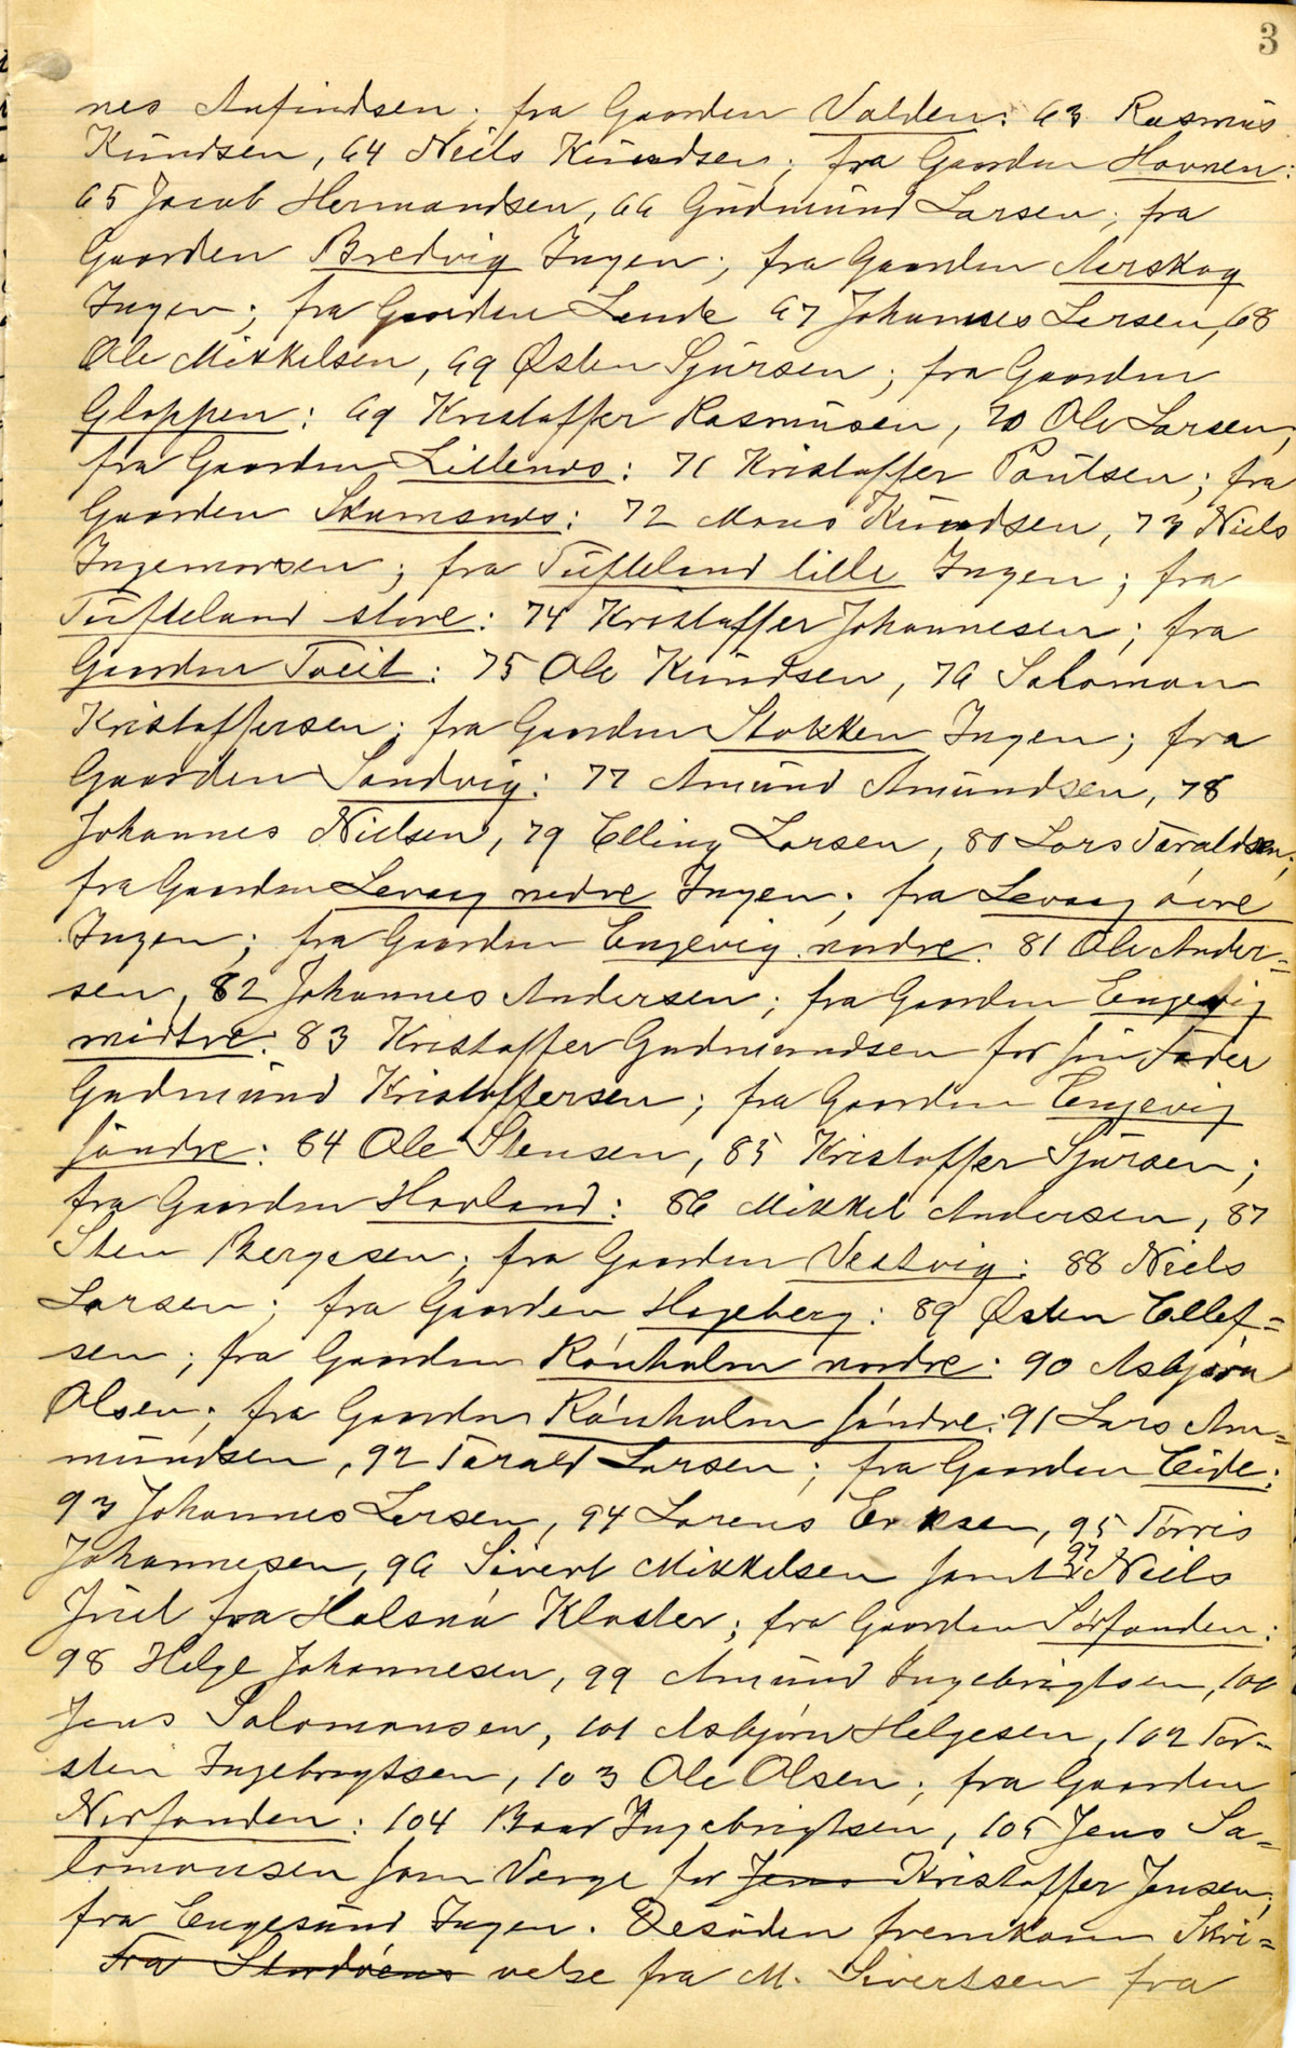 3
nes Anfindsen; fra Gaarden Valden: 63 Rasmus
Knudsen, 64 Niels Knudsen; fra Gaarden Hovnen:
65 Jacob Hermandsen, 66 Gudmund Larsen; fra
Gaarden Bredvig Ingen; fra Gaarden Aarskog
Ingen; fra Gaarden Lende 67 Johannes Larsen, 68
Ole Mikkelsen, 69 Østen Sjursen; fra Gaarden
Gloppen: 69 Kristoffer Rasmusen, 70 Ole Larsen;
fra Gaarden Lillenes: 71 Kristoffer Poulsen; fra
Gaarden Skumsnes: 72 Mons Knudsen, 73 Niels
Ingemorsen; fra Tufteland lille Ingen; fra
Tufteland store: 74 Kristoffer Johannesen; fra
Gaarden Tveit: 75 Ole Knudsen, 76 Salomon
Kristoffersen; fra Gaarden Stokken Ingen; fra
Gaarden Sandvig: 77 Amund Amundsen, 78
Johannes Nielsen, 79 Elling Larsen, 80 Lars Taraldsen;
fra Gaarden Levaag nedre Ingen; fra Levaag øvre
Ingen; fra Gaarden Engevig nordre: 81 Ole Ander=
sen, 82 Johannes Andersen; fra Gaarden Engevig
midtre: 83 Kristoffer Gudmundsen for sin Fader
Gudmund Kristoffersen; fra Gaarden Engevig
söndre: 84 Ole Stensen, 85 Kristoffer Sjursen;
fra Gaarden Hovland: 86 Mikkel Andersen, 87
Sten Bergesen; fra Gaarden Vestvig: 88 Niels
Larsen; fra Gaarden Hageberg: 89 Østen Ellef=
sen; fra Gaarden Rönholm nordre: 90 Asbjørn
Olsen; fra Gaarden Rönholm söndre: 91 Lars Am=
mundsen, 92 Tarald Larsen; fra Gaarden Eide:
93 Johannes Larsen, 94 Lorens Eriksen, 95 Torris
Johannesen, 96 Sivert Mikkelsen samt 97 Niels
Juel fra Halsnø Kloster; fra Gaarden Sørfonden:
98 Helge Johannesen, 99 Amund Ingebrigtsen, 100
Jens Salomonsen, 101 Asbjørn Helgesen, 102 Tor=
sten Ingebrigtsen, 103 Ole Olsen; fra Gaarden
Norfonden: 104 Baar Ingebrigtsen, 105 Jens Sa=
lomonsen som Verge for Jens Kristoffer Jensen;
fra Engesund Ingen. Desuden fremkom Skri=
Fra Stordöens velse fra M. Sivertsen fra